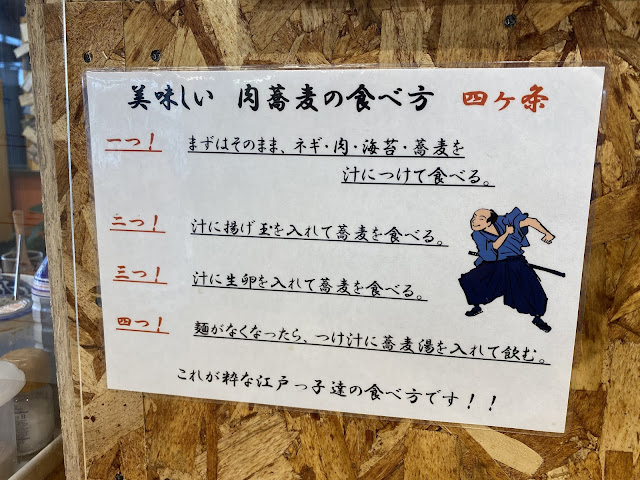 美味しい 肉蕎麦の食べ方 四ヶ条
一つ! まずはそのまま、ネギ・肉・海苔・蕎麦を
汁につけて食べる。
二つ! 汁に揚げ玉を入れて蕎麦を食べる。
三つ! 汁に生卵を入れて蕎麦を食べる。
四つ! 麺がなくなったら、つけ汁に蕎麦湯を入れて飲む。
これが粋な江戸っ子達の食べ方です!!